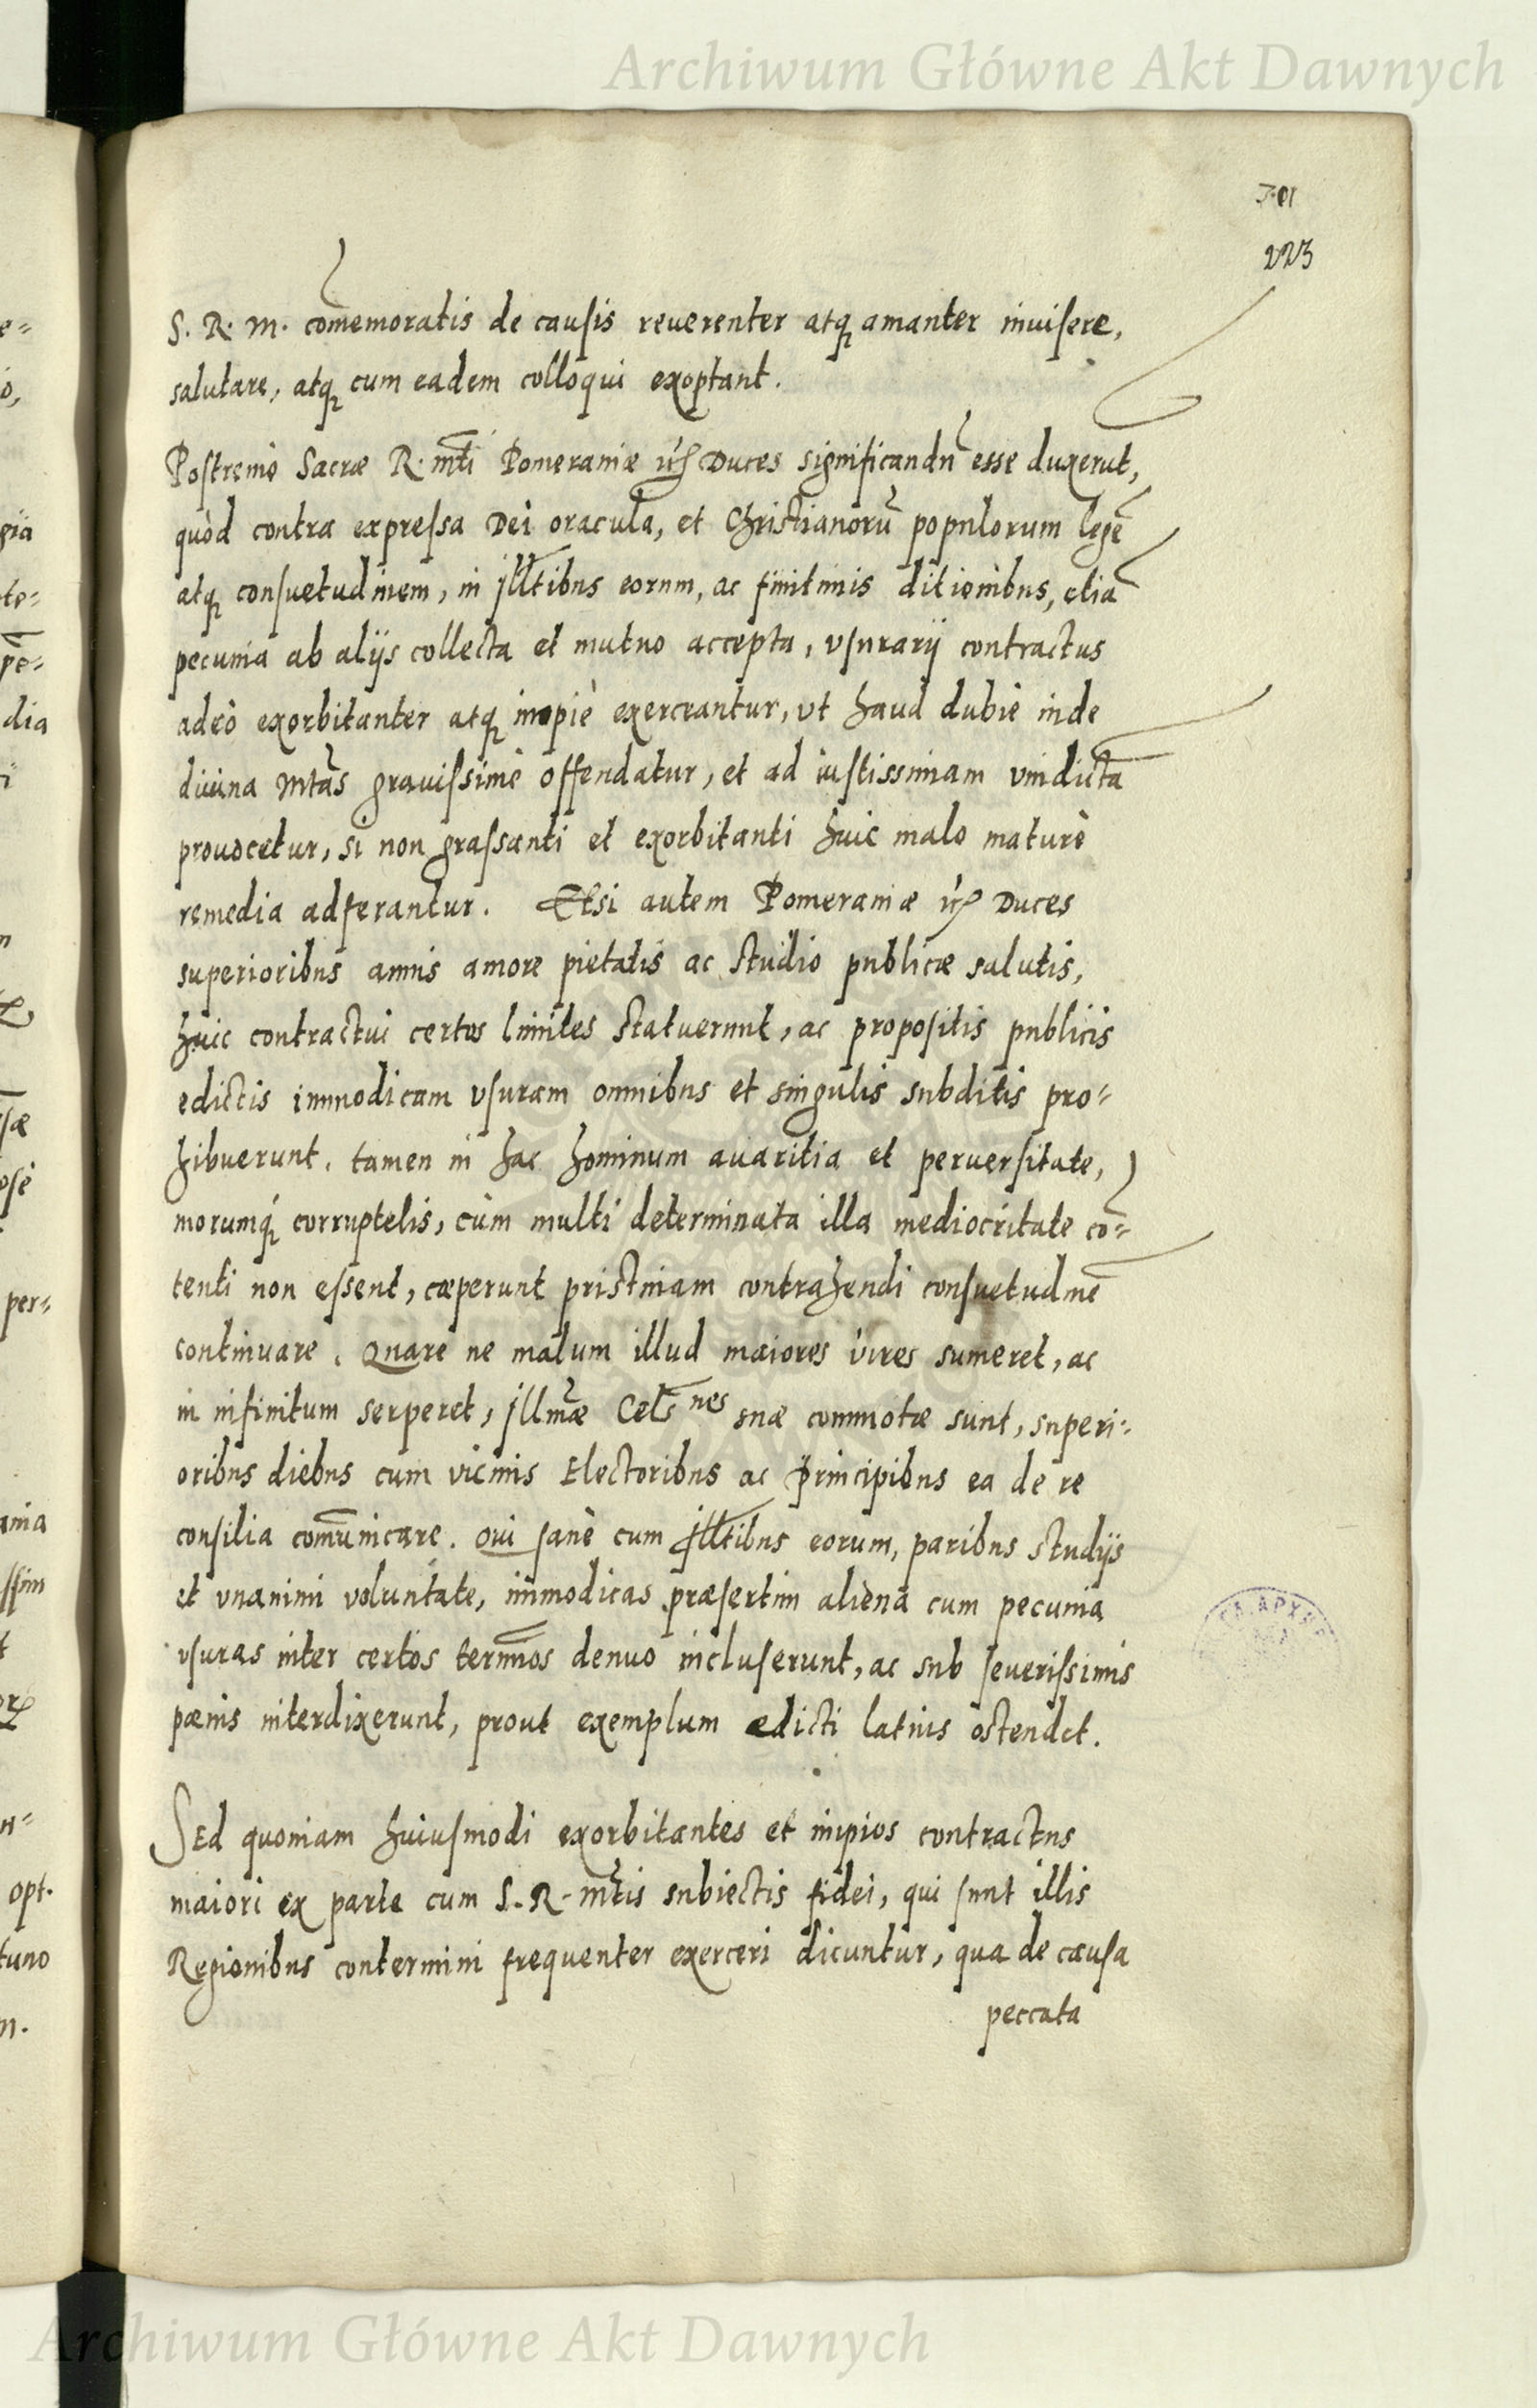 Archiwum Główne Akt Dawnych
223
S. R. M. com̄emoratis de causis reuerenter atq; amanter inuisere,
salutare, atq; cum eadem colloqui exoptant.
Postremò Sacræ R. Mti Pomeraniæ Duces significandū esse duxerūt,
quòd contra expressa Dei oracula, et Christianorū populorum legē
atq; consuetudinem, in Jllītibus eorum, ac finitimis ditionibus, etiā
pecunia ab alijs collecta et mutuo accepta, vsurarij contractus
adeò exorbitanter atq; impiè exerceantur, vt haud dubiè inde
diuina Mtās grauissimè offendatur, et ad iustissimam vindictā
prouocetur, si non grassanti et exorbitanti huic malo maturè
remedia adferantur. Etsi autem Pomeraniæ Duces
superioribus annis amore pietatis ac studio publicæ salutis,
huic contractui certos limites statuerunt, ac propositis publicis
edictis immodicam vsuram omnibus et singulis subditis pro-
hibuerunt, tamen in hac hominum auaritia et peruersitate,
morumq; corruptelis, cùm multi determinata illa mediocritate cō-
tenti non essent, cæperunt pristinam contrahendi consuetudinē
continuare. Quare ne malum illud maiores vires sumeret, ac
in infinitum serperet, Jllmæ Cels nes suæ commotæ sunt, superi-
oribus diebus cum vicinis Electoribus ac Principibus ea de re
consilia com̄unicare. Qui sanè cum Jllītibus eorum, paribus studijs
et vnanimi voluntate, im̄modicas præsertim aliena cum pecunia
vsuras inter certos termīnos denuo incluserunt, ac sub seuerissimis
pænis interdixerunt, prout exemplum ædicti latius ostendet.
Sed quoniam huiusmodi exorbitantes et impios contractus
maiori ex parte cum S. R. Mtis subiectis fidei, qui sunt illis
Regionibus contermini frequenter exerceri dicuntur, qua de causa
peccata
Archiwum Główne Akt Dawnych